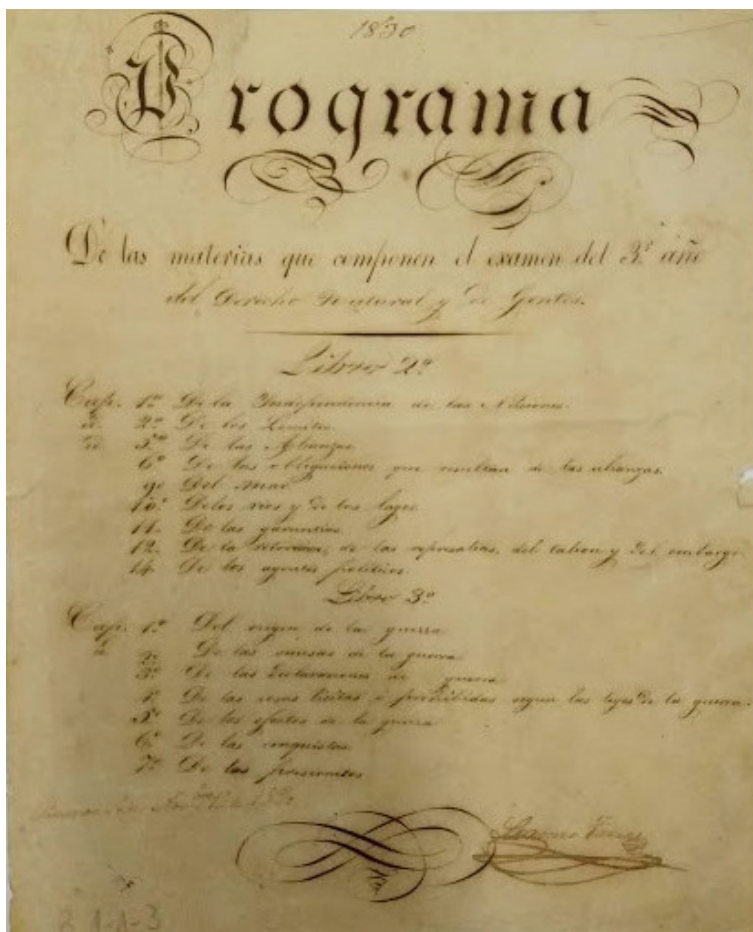 1830
Programa
De las materias que componen el examen del 3.º año
del Derecho Natural y de Gentes.
Libro 2º
Cap. 1º De la Independencia de las Naciones.
id. 2º De los Limites.
id. 5º De las Alianzas.
6º De las obligaciones que resultan de las alianzas.
9º Del mar
10.º De los rios y de los lagos.
11. De las garantias.
12. De la retorsion, de las represalias, del talion y del embargo.
14. De los agentes politicos.
Libro 3º
Cap. 1º Del origen de la guerra
id 2º De las causas de la guerra
3º De las declaraciones de guerra
4º De las cosas licitas o prohibidas segun las leyes de la guerra.
5º De los efectos de la guerra
6º De las conquistas
7º De los prisioneros
B 1-1-3